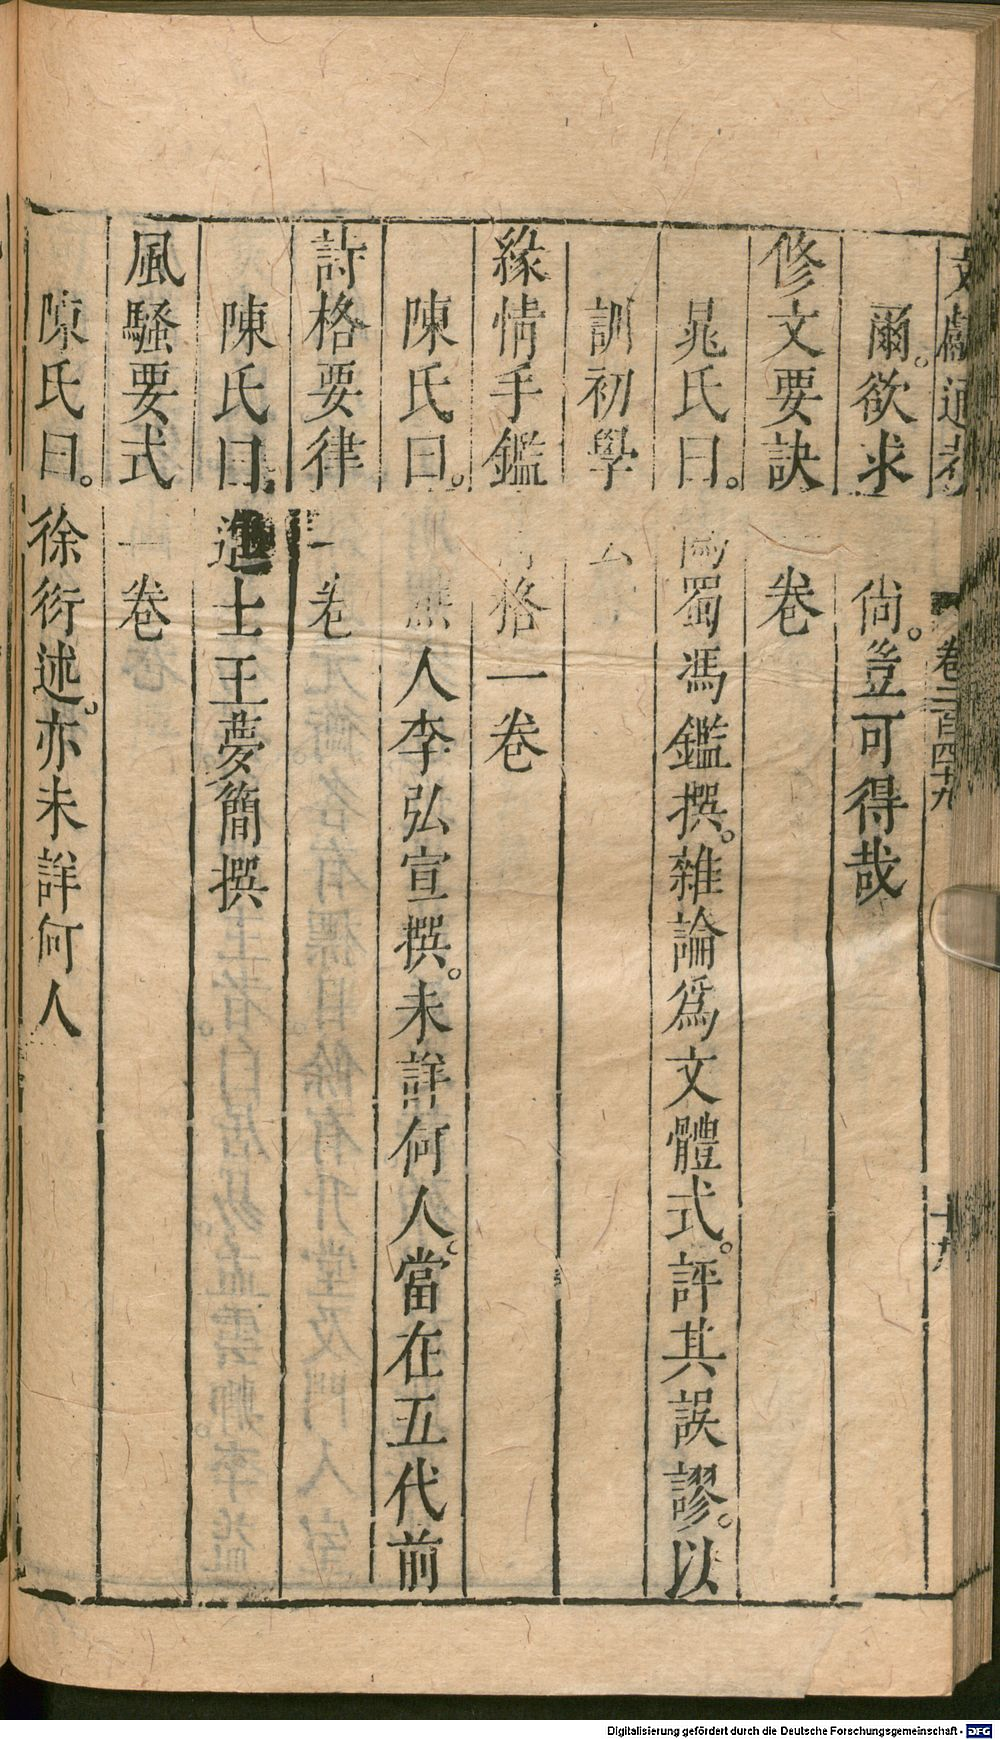 文獻通考 卷二百四十九 十九
爾。欲求 尙。豈可得哉
修文要訣 一卷
晁氏曰。 蜀馮鑑撰。雜論爲文體式。評其誤謬。以
訓初學
緣情手鑑 格一卷
陳氏曰。 人李弘宣撰。未詳何人。當在五代前
詩格要律 一卷
陳氏曰。 進士王夢簡撰
風騷要式 一卷
陳氏曰。徐衍述。亦未詳何人
Digitalisierung gefördert durch die Deutsche Forschungsgemeinschaft - DFG